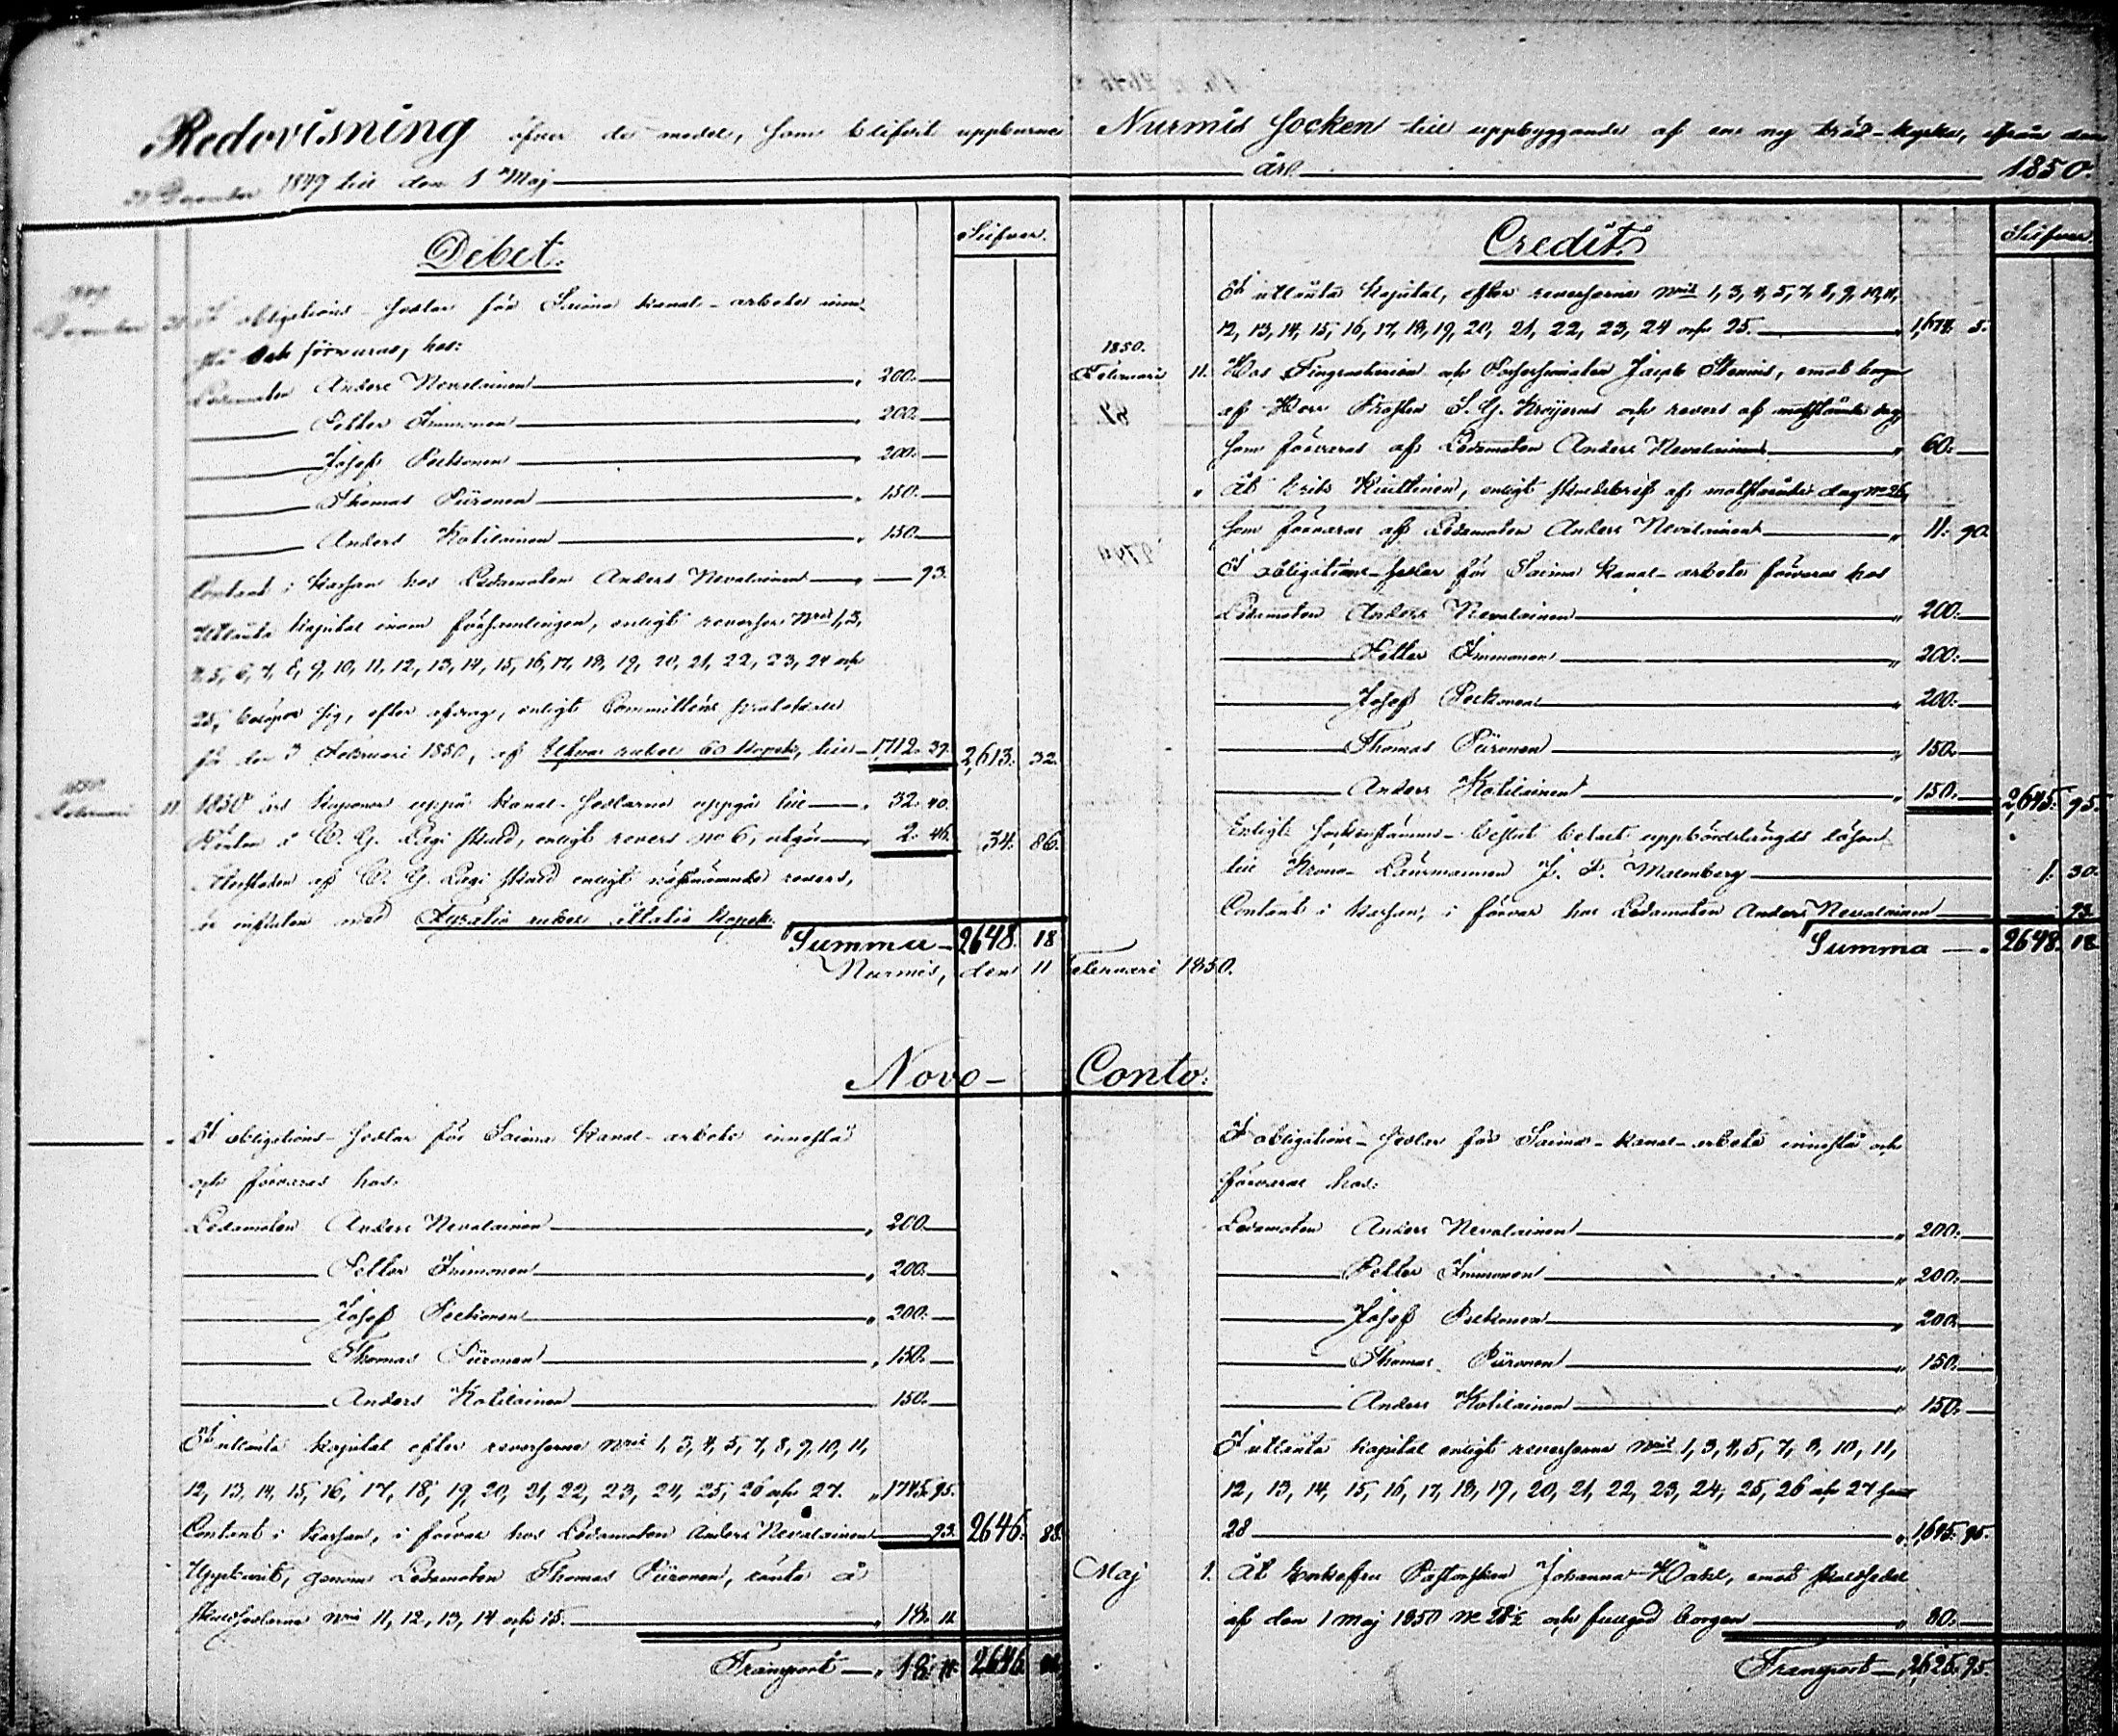 Redovisning öfver de medel, som blifvit uppburne i Nurmis Socken till uppbyggande af en ny träd-kyrka, ifrån den
31 December 1849 till den 1 Maj år 1850.
Debet.
Silfver.
1849
December 31 I obligations-sedlar för Saima kanal-arbete inne-
stå och förvaras, hos:
Ledamoten Anders Nevalainen " 200.
Petter Immonen " 200.
Josef Peckonen " 200.
Thomas Piironen " 150.
Anders Kotilainen " 150.
Contant i kassan hos Ledamoten Anders Nevalainen " 93.
Utlånta kapital inom församlingen, enligt reverser Nris 1, 3,
4, 5, 6, 7, 8, 9, 10, 11, 12, 13, 14, 15, 16, 17, 18, 19, 20, 21, 22, 23, 24 och
25, belöper sig, efter afdrag, enligt Committéns protokoll
för den 3 Februari 1850, af rubel 60 kopek, till 1,712. 39. 2,613. 32.
1850
Februari 11. 1850 års kuponer uppå kanal-sedlarne uppgå till " 32. 40.
Räntan å C. G. Lagi skuld, enligt revers No 6, utgör 2. 46. 34. 86.
af C. G. Lagi skuld enligt nästnämnde revers,
är influten med Fyratio rubel åttatio kopek.
Summa 2648. 18
Credit.
Silfver.
I utlånta kapital, efter reverserne Nris 1, 3, 4, 5, 7, 8, 9, 10, 11,
12, 13, 14, 15, 16, 17, 18, 19, 20, 21, 22, 23, 24 och 25. " 1,674. 5.
1850.
Februari 11. Hos och Jacob Stenius, emot borgen
af Herr Prosten S. G. Krøjerus och revers af motstående dag,
som förvaras af Ledamoten Anders Nevalainen " 60.
" Åt Erik Kiuttinen, enligt skuldebref af motstående dag No 26,
som förvaras af Ledamoten Anders Nevalainen " 11. 90.
I obligations-sedlar för Saima kanal-arbete förvaras hos
Ledamoten Anders Nevalainen " 200.
Petter Immonen " 200.
Josef Peckonen " 200.
Thomas Piironen " 150.
Anders Kotilainen " 150. 2,645. 95.
Enligt sockenstämmo-beslut betalt uppbördslängds lösen
till Krono-Länsmannen J. F. Malmberg 1. 30.
Contant i kassan, i förvar hos Ledamoten Anders Nevalainen 93.
Summa " 2648. 18
Nurmis, den 11 Februari 1850.
Novo- Conto.
" I obligations-sedlar för Saima kanal-arbete innestå
och förvaras hos:
Ledamoten Anders Nevalainen " 200.
Petter Immonen " 200.
Josef Peckonen " 200.
Thomas Piironen " 150.
Anders Kotilainen 150.
I utlånta kapital efter reverserne Nris 1, 3, 4, 5, 7, 8, 9, 10, 11,
12, 13, 14, 15, 16, 17, 18, 19, 20, 21, 22, 23, 24, 25, 26 och 27. " 1745. 95.
Contant i kassan, i förvar hos Ledamoten Anders Nevalainen 93. 2646. 88
Uppburit, genom Ledamoten Thomas Piironen, ränta å
skuldsedlarne Nris 11, 12, 13, 14 och 15. " 18. 11.
Transport " 18. 11. 2646. 88
I obligations-sedlar för Saima-kanal-arbete innestå och
förvaras hos:
Ledamoten Anders Nevalainen " 200.
Petter Immonen " 200.
Josef Peckonen " 200.
Thomas Piironen " 150.
Anders Kotilainen " 150.
I utlånta kapital enligt reverserne Nris 1, 3, 4, 5, 7, 9, 10, 11,
12, 13, 14, 15, 16, 17, 18, 19, 20, 21, 22, 23, 24, 25, 26 och 27 samt
28 " 1,645. 95.
Maj 1. Åt Enkefru Pastorskan Johanna Hahl, emot skuldsedel
af den 1 Maj 1850 No 28½ och fullgod borgen " 80.
Transport " 2,625. 95.